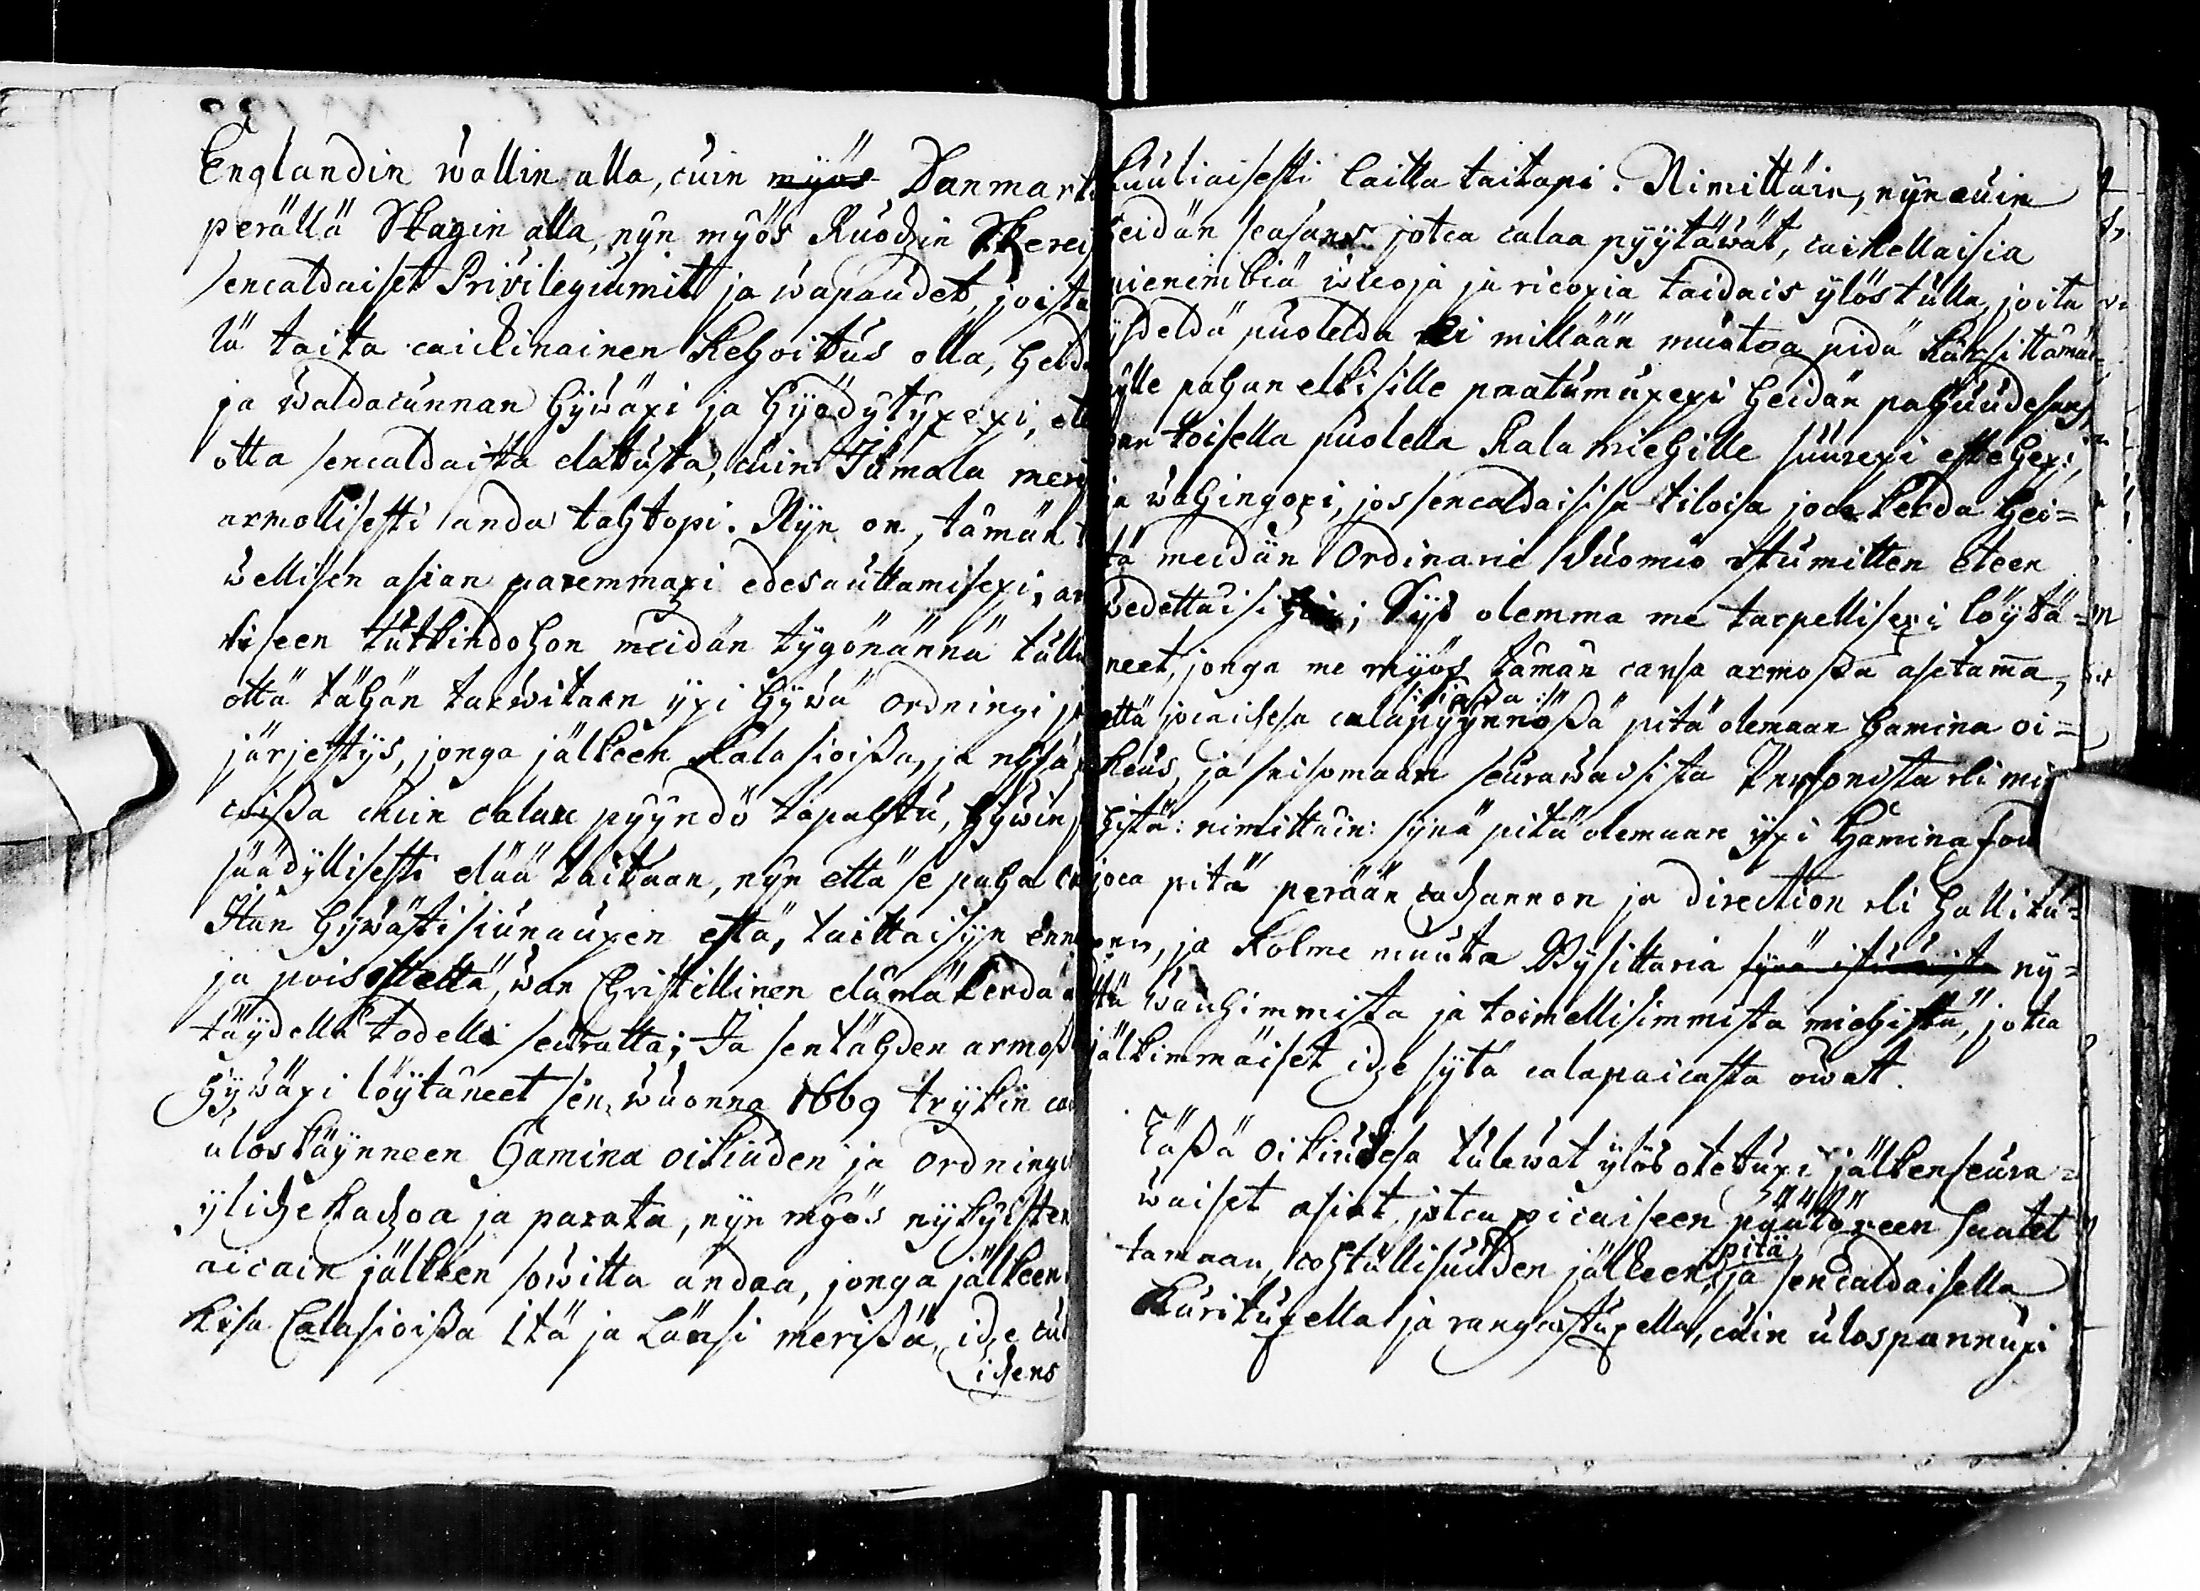 Englandin wallin alla, cuin myös Danmark
perällä Skagin alla, nijn myös Ruodzin Skerei
sencaldaiset Privilegiumit ja wapaudet, joista
lä taita caickinainen Kehoitus olla, heidä
ja Waldacunnan hywäxi ja hyödytyxexi, ett
otta sencaldaista elatusta, cuin Jumala meri
armollisesti anda tahtopi. Nijn on, tämän
wellisen asian paremmaxi edesauttamisexi, ar
kiseen tutkindohon meidän tygönännä tullu
että tähän tarwitaan yxi hywä ordningi ja
järjestys, jonga jälkeen Kala sioißa, ja
cuin calan pyyndö tapahtu, hywin ja
säädyllisesti elää taitaan, nijn että se paha
Itän hywästi siunauxen estä, taittaisijn enn
ja pois otetta, wan Christillinen elämäkerda
täydellä todella seuratta; Ja sentähden armoß
hywäxi löytäneet sen, wuonna 1669 tryckin cau
uloskäynneen Hamina oikiuden ja ordningi
ylidzekadzoa ja parata, nijn myös nykyisten
aicain jälken sowitta andaa, jonga jälkeen
kisa Calasioißa Itä ja Länsi merißä, idze cu
idzens
Kuuliaisesti laitta taitapi. Nimittäin, nijncuin
heidän seasans jotca calaa pyytäwät, caikellaisia
wicoja ja ricoxia taidais ylöstulla, joita
yhdeldä puolelda ei millään muatoa pidä kärsittämän
sylle pahan elkisille paatumuxexi heidän pahuudesans,
wan toisella puolella Kala miehille suurexi estehexi
ja wahingoxi, jos sencaldaisisa tiloisa joca kerda hei=
tä meidän Ordinarie Duomio Stumitten eteen
wedettäisi; Nijs olemma me tarpellisexi löytä=
neet, jonga me myös tämän cansa armoßa asetam̄a,
:sioißa:
että jocaidzesa calapyynnößä pitä olemaan hamina oi=
keus, ja seisomaan seurawaisista Personista eli mi
histä: nimittäin: sijnä pitä olemaan yxi Hamina Fou
joca pitä perään cadzannon ja direction eli hallitu=
xen, ja Kolme muuta Bysittaria sijnä istuwista ny=
ttä wanhimmista ja toimellisimmista miehistä, jotca
jälkimmäiset idze sijtä calapaicasta owatt.
Täßä oikiudesa tulewat ylös otetuxi jälkenseura=
waiset asiat, jotca picaiseen päätöxeen saatet
tamaan, cohtullisuuden jälkeen, pitä ja sencaldaisella
Kurituxella ja rangaistuxella, cuin ulospannuxi